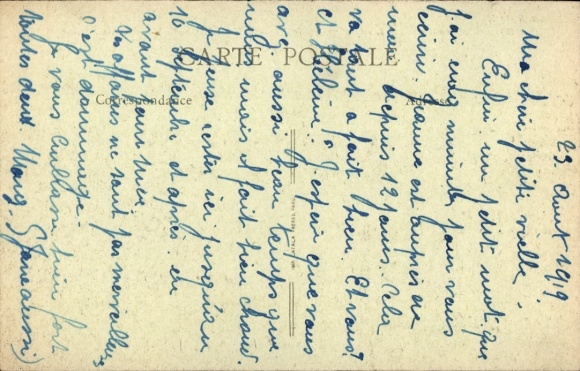 CARTE POSTALE
Correspondance
Adresse
23 Août 1919
Ma chère petite vieille,
Enfin un petit mot que
j'ai cinq minutes pour vous
écrire. Jeanne est auprès de
moi depuis 12 jours. Cela
va tout à fait bien. Et vous?
et Hélène? J'espère que vous
avez aussi beau temps que
nous mais il fait bien chaud.
Je pense rester ici jusqu'au
16 septembre et après en
avant
Les affaires ne sont pas merveilleuses
c'est dommage.
Je vous embrasse bien fort
toutes deux. Marg. (Jane aussi)